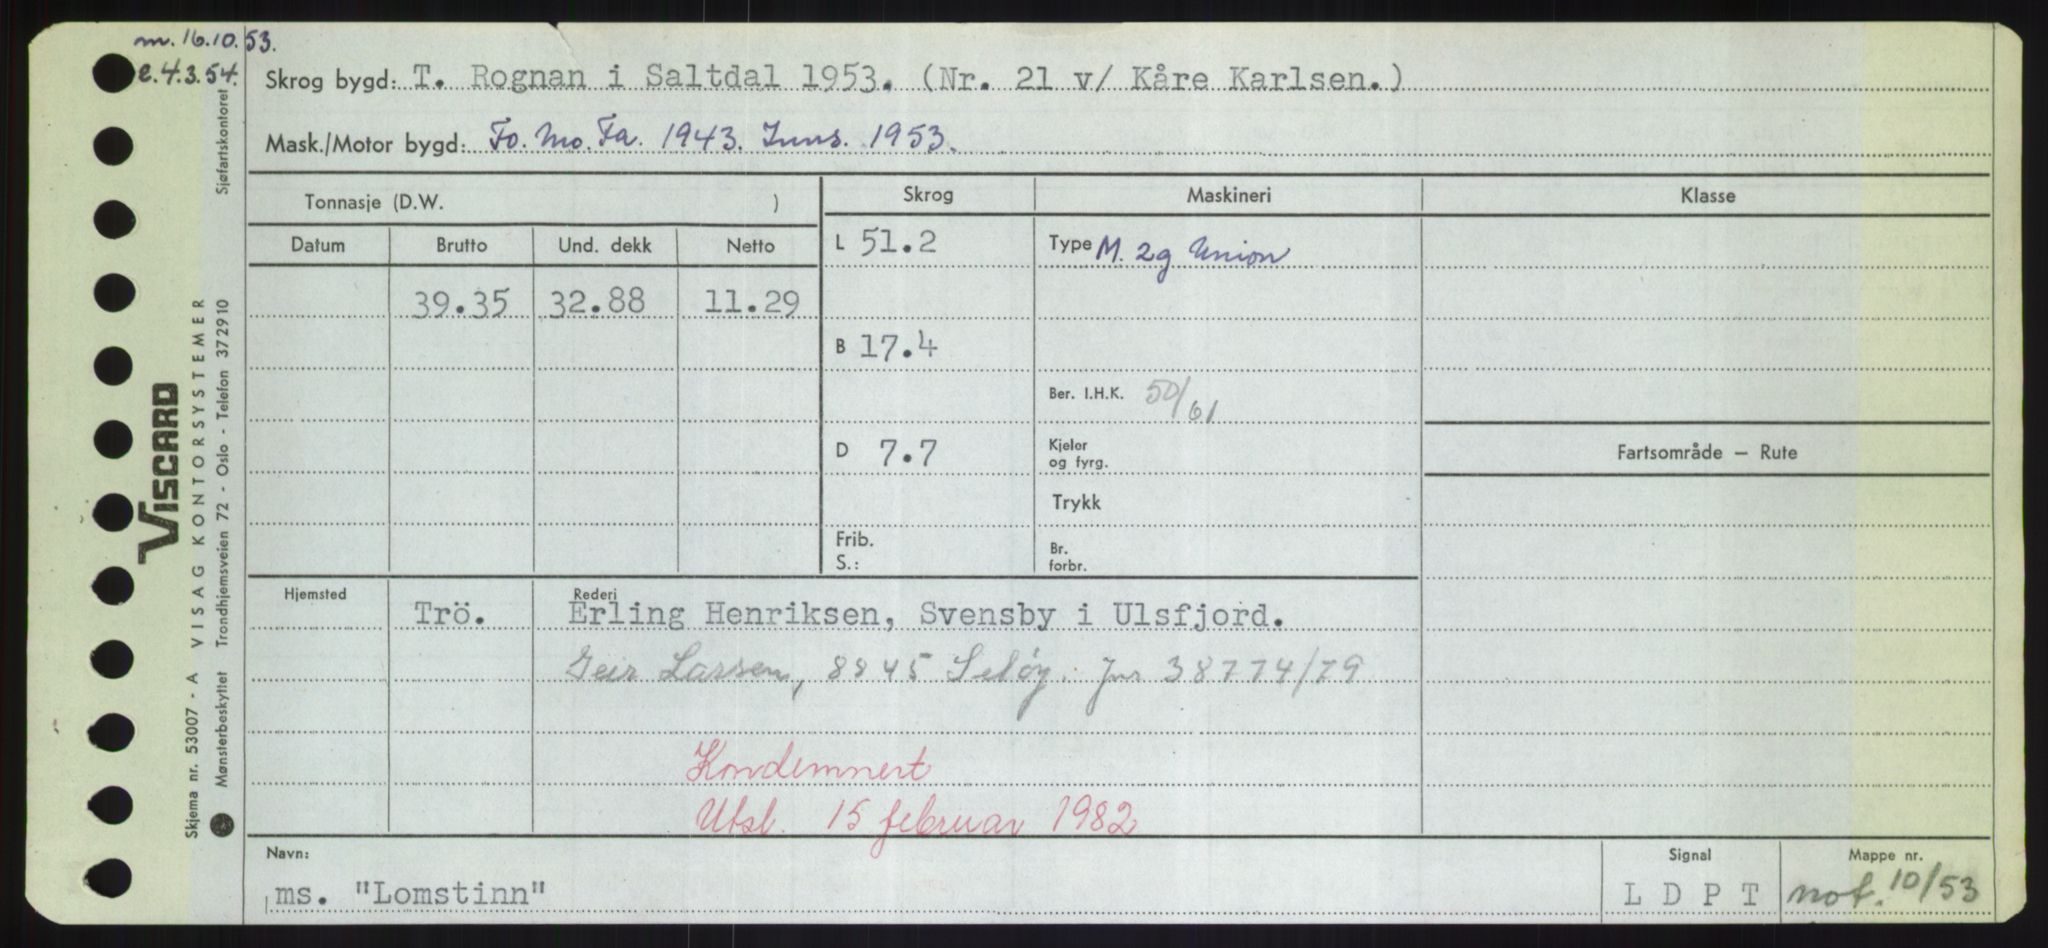 m. 16.10.53.
e. 4.3.54.
Skrog bygd: T. Rognan i Saltdal 1953. (Nr. 21 v/ Kåre Karlsen.)
Mask./Motor bygd: Fo. Mo. Fa. 1943. Inns. 1953.
Tonnasje (D.W. )
Skrog
Maskineri
Klasse
Datum
Brutto
Und. dekk
Netto
L 51.2
Type M. 2g Union
39.35
32.88
11.29
B 17.4
Ber. I.H.K. 50/61
D 7.7
Kjeler
og fyrg.
Fartsområde – Rute
Trykk
Frib.
S.:
Br.
forbr.
Hjemsted
Rederi
Trö.
Erling Henriksen, Svensby i Ulsfjord.
Geir Larsen, 8845 Seløy. Jnr 38774/79
Kondemnert
Utsl. 15 februar 1982
Navn:
ms. "Lomstinn"
Signal
L D P T
Mappe nr.
not. 10/53
VISCARD
VISAG KONTORSYSTEMER
Sjøfartskontoret
Trondhjemsveien 72 - Oslo - Telefon 372910
Skjema nr. 53007 - A
Mønsterbeskyttet